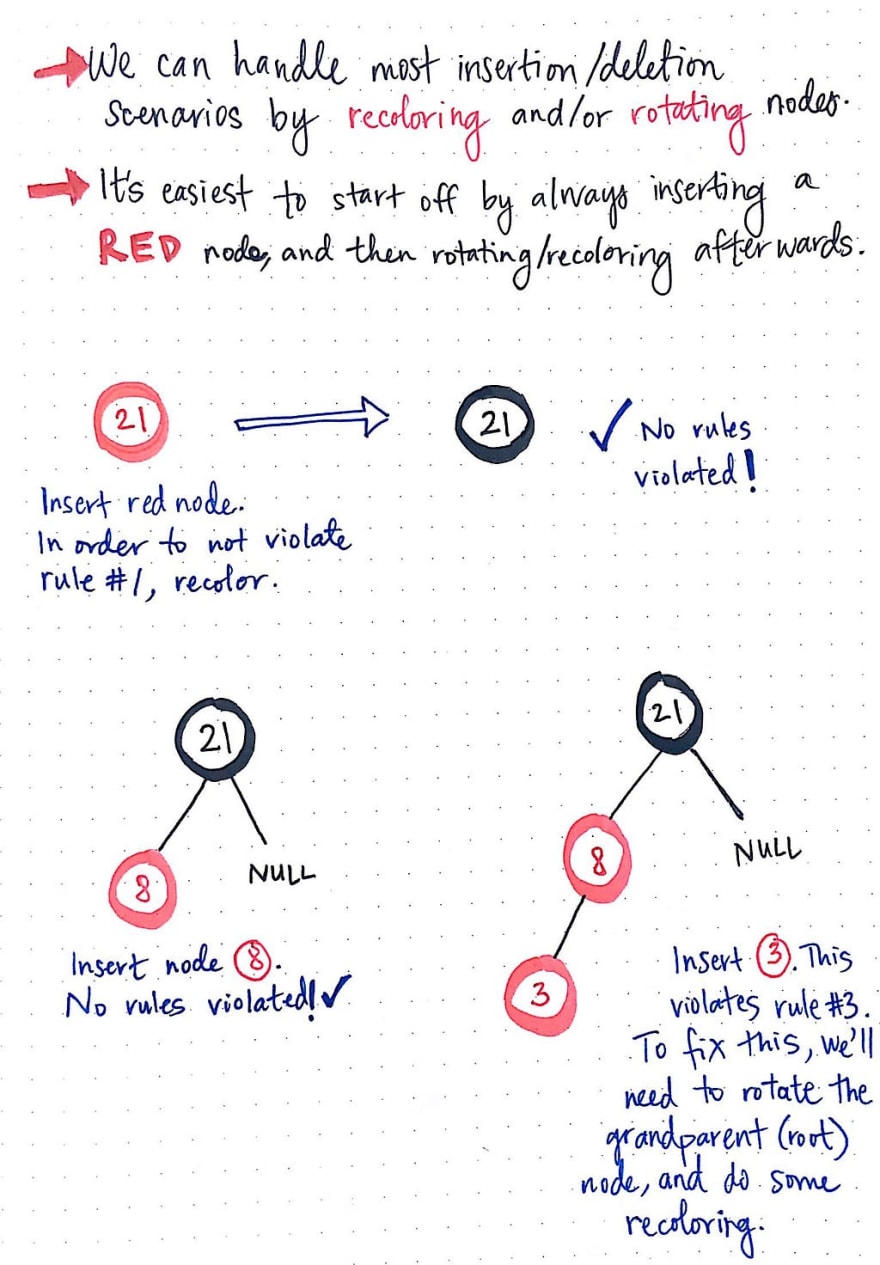 We can handle most insertion/deletion
scenarios by recoloring and/or rotating nodes.
It's easiest to start off by always inserting a
RED node, and then rotating/recoloring afterwards.
21
21
✓ No rules
violated!
Insert red node.
In order to not violate
rule #1, recolor.
21
8
NULL
Insert node 8.
No rules violated! ✓
21
8
NULL
3
Insert 3. This
violates rule #3.
To fix this, we'll
need to rotate the
grandparent (root)
node, and do some
recoloring.